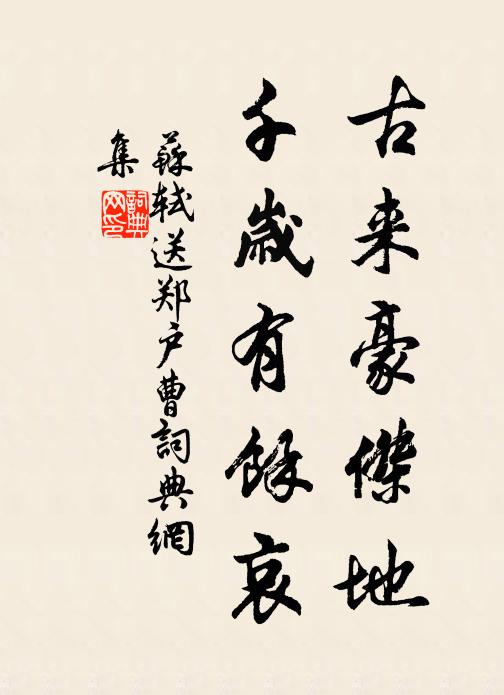 古来豪傑地
千歲有餘哀
蘇軾送郑户曹詞典網
集
詞典
网印